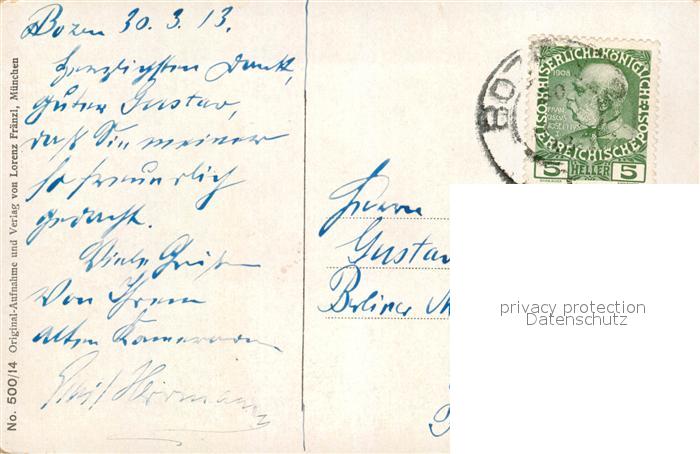 Bozen 30.3.13.
Herzlichsten Dank,
guter Gustav,
daß Sie meiner
so freundlich
gedacht.
Viele Grüße
von Ihrem
alten Kameraden
Herrmann
No. 500/14 Original-Aufnahme und Verlag von Lorenz Fränzl, München
BOZ
K.K.ÖSTERREICHISCHE POST
1908
5 HELLER 5
Herrn
Gustav
Berliner
privacy protection
Datenschutz